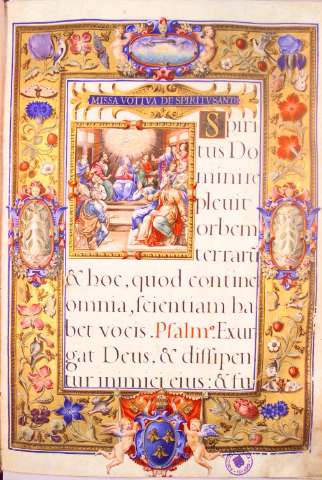 MISSA VOTIVA DE SPIRITV SANTO
Spiri
tus Do
mini re
pleuit
orbem
terrarũ
& hoc, quod contine
omnia, scientiam ha
bet vocis. Psalmꝰ. Exur
gat Deus. & dissipen
tur inimici eius: & fu